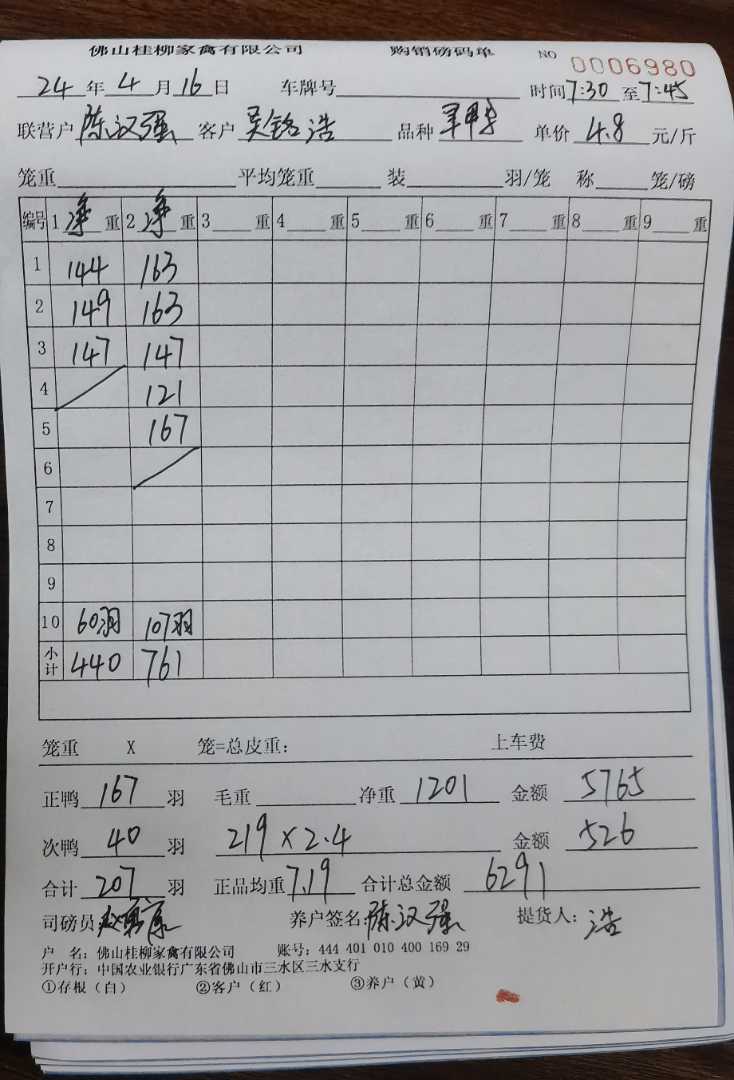 佛山桂柳家禽有限公司 购销磅码单 NO 0006980
24 年 4 月 16 日 车牌号 时间 7:30 至 7:45
联营户 陈汉强 客户 吴铭浩 品种 单价 4.8 元/斤
笼重 平均笼重 装 羽/笼 称 笼/磅
编号 1 净 重 2 净 重 3 重 4 重 5 重 6 重 7 重 8 重 9 重
1 144 163
2 149 163
3 147 147
4 121
5 167
6
7
8
9
10 60羽 107羽
小计 440 761
笼重 X 笼=总皮重: 上车费
正鸭 167 羽 毛重 净重 1201 金额 5765
次鸭 40 羽 219 × 2.4 金额 526
合计 207 羽 正品均重 7.19 合计总金额 6291
司磅员 养户签名: 陈汉强 提货人: 浩
户 名: 佛山桂柳家禽有限公司 账号: 444 401 010 400 169 29
开户行: 中国农业银行广东省佛山市三水区三水支行
①存根(白) ②客户(红) ③养户(黄)